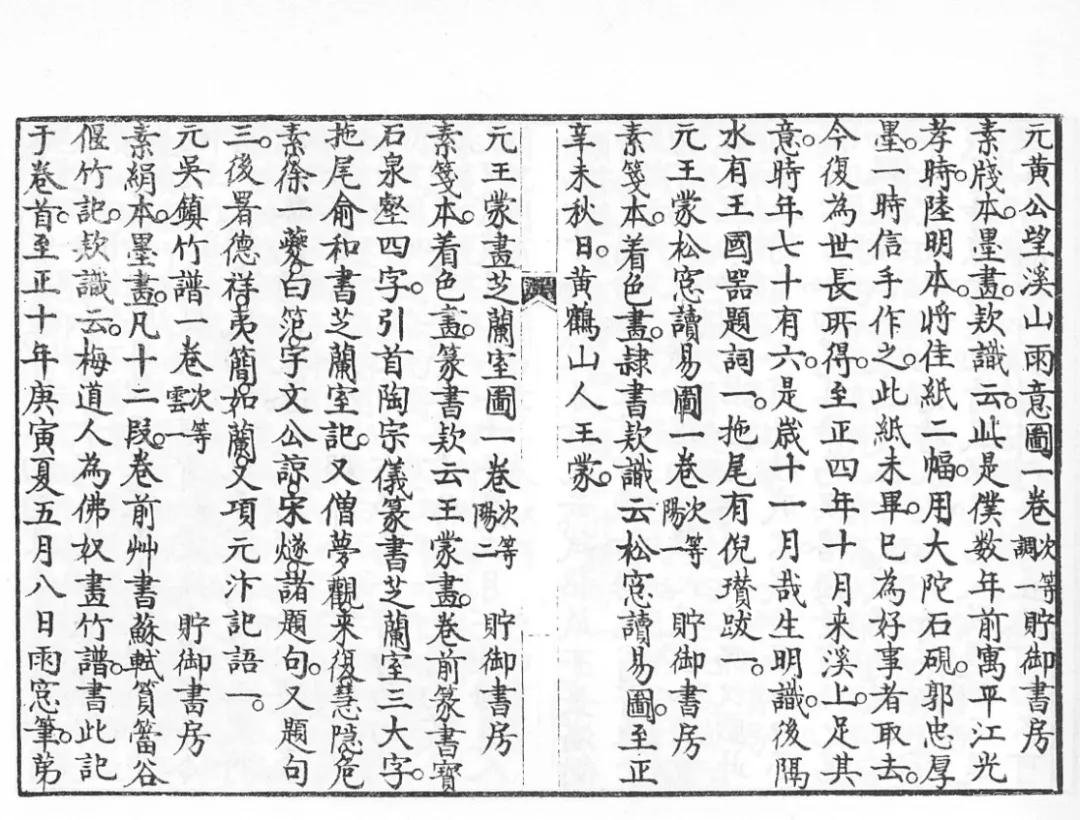 元黄公望溪山雨意圖一卷次等調一貯御書房
素牋本。墨畫。欵識云。此是僕数年前寓平江光
孝時。陸明本。將佳紙二幅。用大陀石硯。郭忠厚
墨。一時信手作之。此紙未畢。已為好事者取去。
今復為世長所得。至正四年十月來溪上。足其
意。時年七十有六。是歲十一月哉生明識。後隔
水有王國器題詞一。拖尾有倪瓚跋一。
元王蒙松窓讀易圖一卷次等陽一貯御書房
素箋本。着色畫。隷書欵識云。松窓讀易圖。至正
辛未秋日。黄鶴山人王蒙。
元王蒙畫芝蘭室圖一卷次等陽二貯御書房
素箋本。着色畫。篆書欵云。王蒙畫。卷前篆書寳
石泉壑四字。引首陶宗儀篆書芝蘭室三大字。
拖尾俞和書芝蘭室記。又僧夢觀。來復。慧隠。危
素。徐一夔。白范。字文公諒。宋燧。諸題句。又題句
三。後署德祥。夷簡。如蘭。又項元汴記語一。
元吳鎮竹譜一卷次等雲一貯御書房
素絹本。墨畫。凡十二段。卷前艸書蘇軾篔簹谷
偃竹記。欵識云。梅道人為佛奴畫竹譜。書此記
于卷首。至正十年庚寅夏五月八日雨窓筆。苐